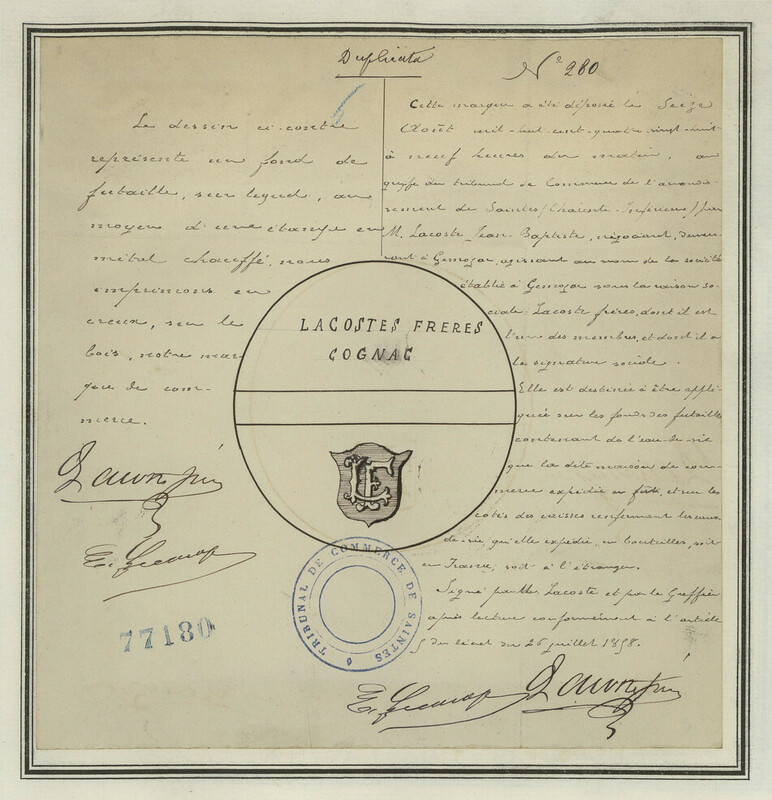 Duplicata
N° 280
Le dessin ci-contre
représente un fond de
futaille, sur lequel, au
moyen d'une étampe en
métal chauffé, nous
imprimons en
creux, sur le
bois, notre mar
que de com-
merce.
Cette marque a été déposée le Seize
Août mil-huit-cent-quatre-vingt-huit
à neuf heures du matin, au
greffe du tribunal de Commerce de l'arrondis-
sement de Saintes (Charente Inférieure) par
M. Lacoste Jean-Baptiste, négociant, demeu-
rant à Gemozac, agissant au nom de la société
établie à Gemozac sous la raison so-
ciale: Lacoste frères, dont il est
l'un des membres, et dont il a
la signature sociale.
Elle est destinée à être appli-
quée sur les fonds des futailles
contenant de l'eau-de-vie
que la dite maison de com-
merce expédie en fûts, et sur les
côtés des caisses renfermant les eaux
de-vie, qu'elle expédie, en bouteilles, soit
en France, soit à l'étranger.
Signé par Lacoste et par le Greffier
après lecture conformément à l'article
5 du décret du 26 juillet 1858.
LACOSTES FRERES
COGNAC
LF
TRIBUNAL DE COMMERCE DE SAINTES
77180